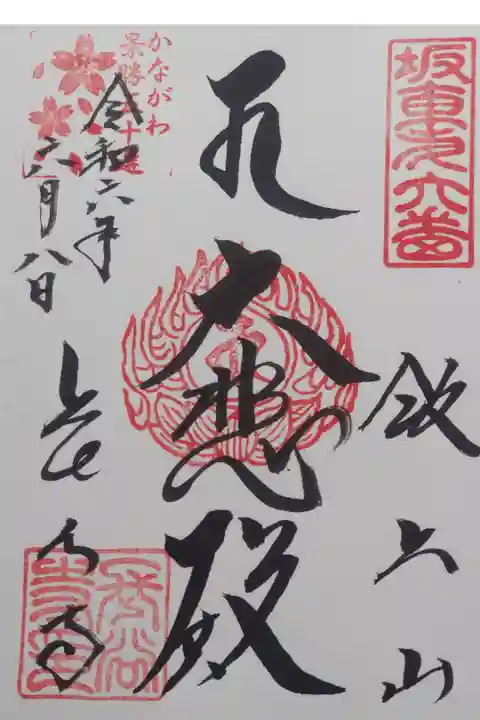 坂東第六番
飯上山
大悲殿
かながわ
景勝五十選
令和六年
六月八日
長谷寺